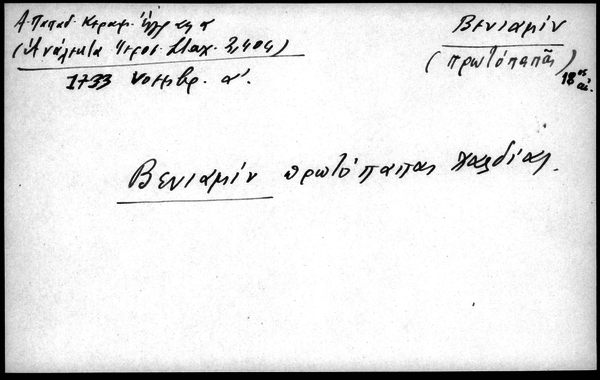 Α. Παπαδ. Κεραμ.
(Ἀνάλεκτα Ἱεροσ. Σταχ. 2, 404)
1733 Νοεμβρ. α΄.
Βενιαμίν
(πρωτόπαπᾶς)
18ος αἰ.
Βενιαμίν πρωτόπαπας Χαλδίας.